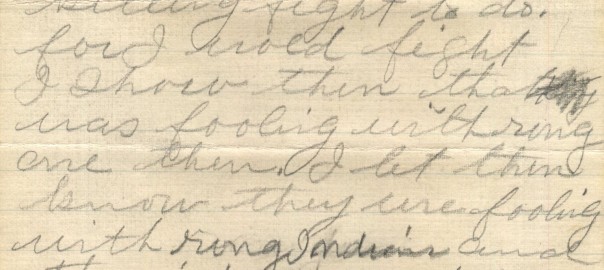 fight to do.
for I wold fight
I show then that
was fooling with rong
one then. I let then
know they were fooling
with rong Indian and